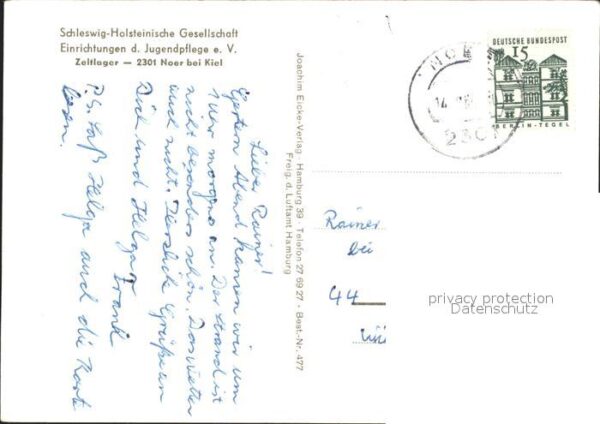 Schleswig-Holsteinische Gesellschaft
Einrichtungen d. Jugendpflege e. V.
Zeltlager — 2301 Noer bei Kiel
Lieber Rainer!
Gestern Abend kamen wir um
1 Uhr morgens an. Der Strand ist
nicht besonders schön. Das Wetter
auch nicht. Herzliche Grüße an
Dich und Helga
Frank
P.S. Laß Helga auch die Karte
lesen.
Joachim Eicke-Verlag · Hamburg 39 · Telefon 27 69 27 · Best.-Nr. 477
Freig. d. Luftamt Hamburg
DEUTSCHE BUNDESPOST
15
BERLIN-TEGEL
NOER
14.
2301
Rainer
bei
44
privacy protection
Datenschutz